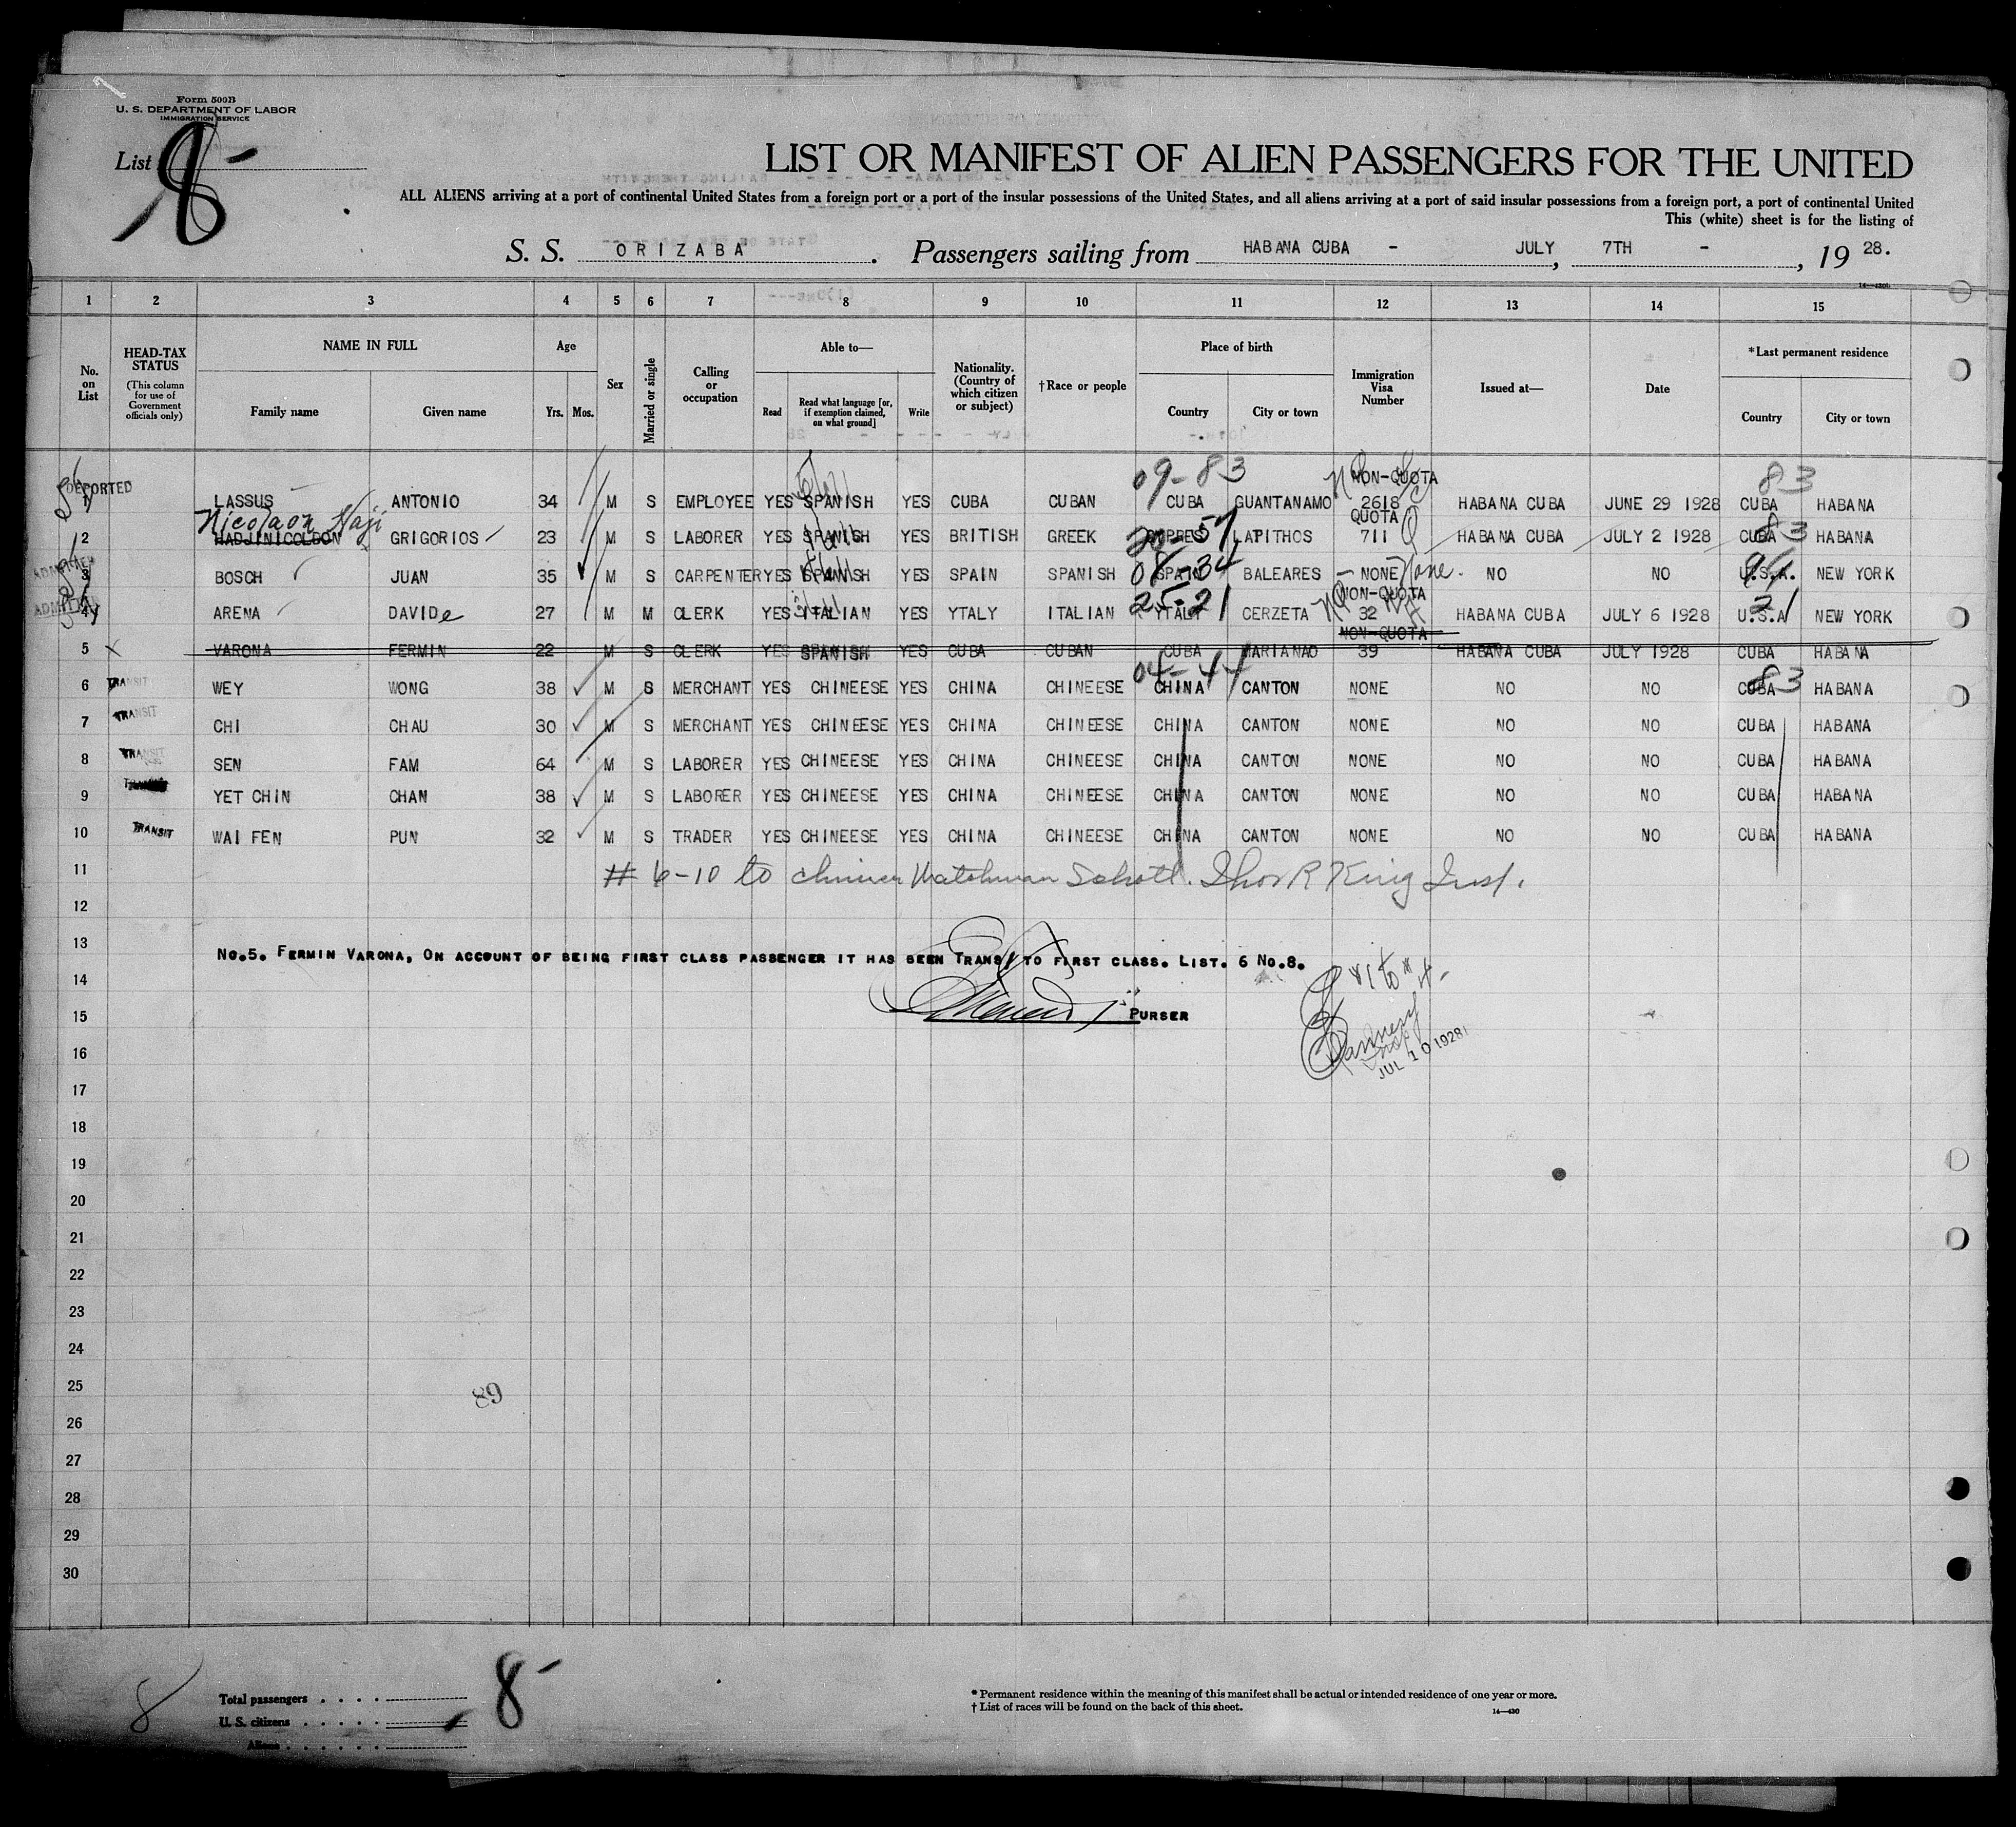 Form 500B
U. S. DEPARTMENT OF LABOR
IMMIGRATION SERVICE
List 8-
LIST OR MANIFEST OF ALIEN PASSENGERS FOR THE UNITED
ALL ALIENS arriving at a port of continental United States from a foreign port or a port of the insular possessions of the United States, and all aliens arriving at a port of said insular possessions from a foreign port, a port of continental United
This (white) sheet is for the listing of
S. S. ORIZABA. Passengers sailing from HABANA CUBA - JULY, 7TH -, 19 28.
1 2 3 4 5 6 7 8 9 10 11 12 13 14 15
No. on List
HEAD-TAX STATUS (This column for use of Government officials only)
NAME IN FULL
Family name
Given name
Age
Yrs. Mos.
Sex
Married or single
Calling or occupation
Able to—
Read
Read what language [or, if exemption claimed, on what ground]
Write
Nationality. (Country of which citizen or subject)
† Race or people
Place of birth
Country
City or town
Immigration Visa Number
Issued at—
Date
* Last permanent residence
Country
City or town
09-83 NON-QUOTA 83
1 DEPORTED LASSUS ANTONIO 34 M S EMPLOYEE YES SPANISH YES CUBA CUBAN CUBA GUANTANAMO 2618 HABANA CUBA JUNE 29 1928 CUBA HABANA
Nicolaon Haji QUOTA
2 HADJINICOLDON GRIGORIOS 23 M S LABORER YES SPANISH YES BRITISH GREEK LAPITHOS 711 HABANA CUBA JULY 2 1928 CUBA 83 HABANA
3 ADMITTED BOSCH JUAN 35 M S CARPENTER YES SPANISH YES SPAIN SPANISH SPAIN 08-34 BALEARES - NONE None - NO NO U.S.A. NEW YORK
NON-QUOTA
4 ADMITTED ARENA DAVIDe 27 M M CLERK YES ITALIAN YES YTALY ITALIAN YTALY 25-21 CERZETA 32 HABANA CUBA JULY 6 1928 U.S.A 21 NEW YORK
NON-QUOTA
5 X VARONA FERMIN 22 M S CLERK YES SPANISH YES CUBA CUBAN CUBA MARIANAO 39 HABANA CUBA JULY 1928 CUBA HABANA
04-44
6 TRANSIT WEY WONG 38 M S MERCHANT YES CHINEESE YES CHINA CHINEESE CHINA CANTON NONE NO NO CUBA 83 HABANA
7 TRANSIT CHI CHAU 30 M S MERCHANT YES CHINEESE YES CHINA CHINEESE CHINA CANTON NONE NO NO CUBA HABANA
8 TRANSIT SEN FAM 64 M S LABORER YES CHINEESE YES CHINA CHINEESE CHINA CANTON NONE NO NO CUBA HABANA
9 YET CHIN CHAN 38 M S LABORER YES CHINEESE YES CHINA CHINEESE CHINA CANTON NONE NO NO CUBA HABANA
10 TRANSIT WAI FEN PUN 32 M S TRADER YES CHINEESE YES CHINA CHINEESE CHINA CANTON NONE NO NO CUBA HABANA
11 # 6-10 to Watchman King Insp.
12
13
NO.5. FERMIN VARONA, ON ACCOUNT OF BEING FIRST CLASS PASSENGER IT HAS BEEN TRANSF TO FIRST CLASS. LIST. 6 NO.8.
14
15 PURSER
JUL 10 1928
16
17
18
19
20
21
22
23
24
25
89
26
27
28
29
30
8
Total passengers . . . .
U. S. citizens . . . . .
Aliens . . . . . .
8-
* Permanent residence within the meaning of this manifest shall be actual or intended residence of one year or more.
† List of races will be found on the back of this sheet.
14—430